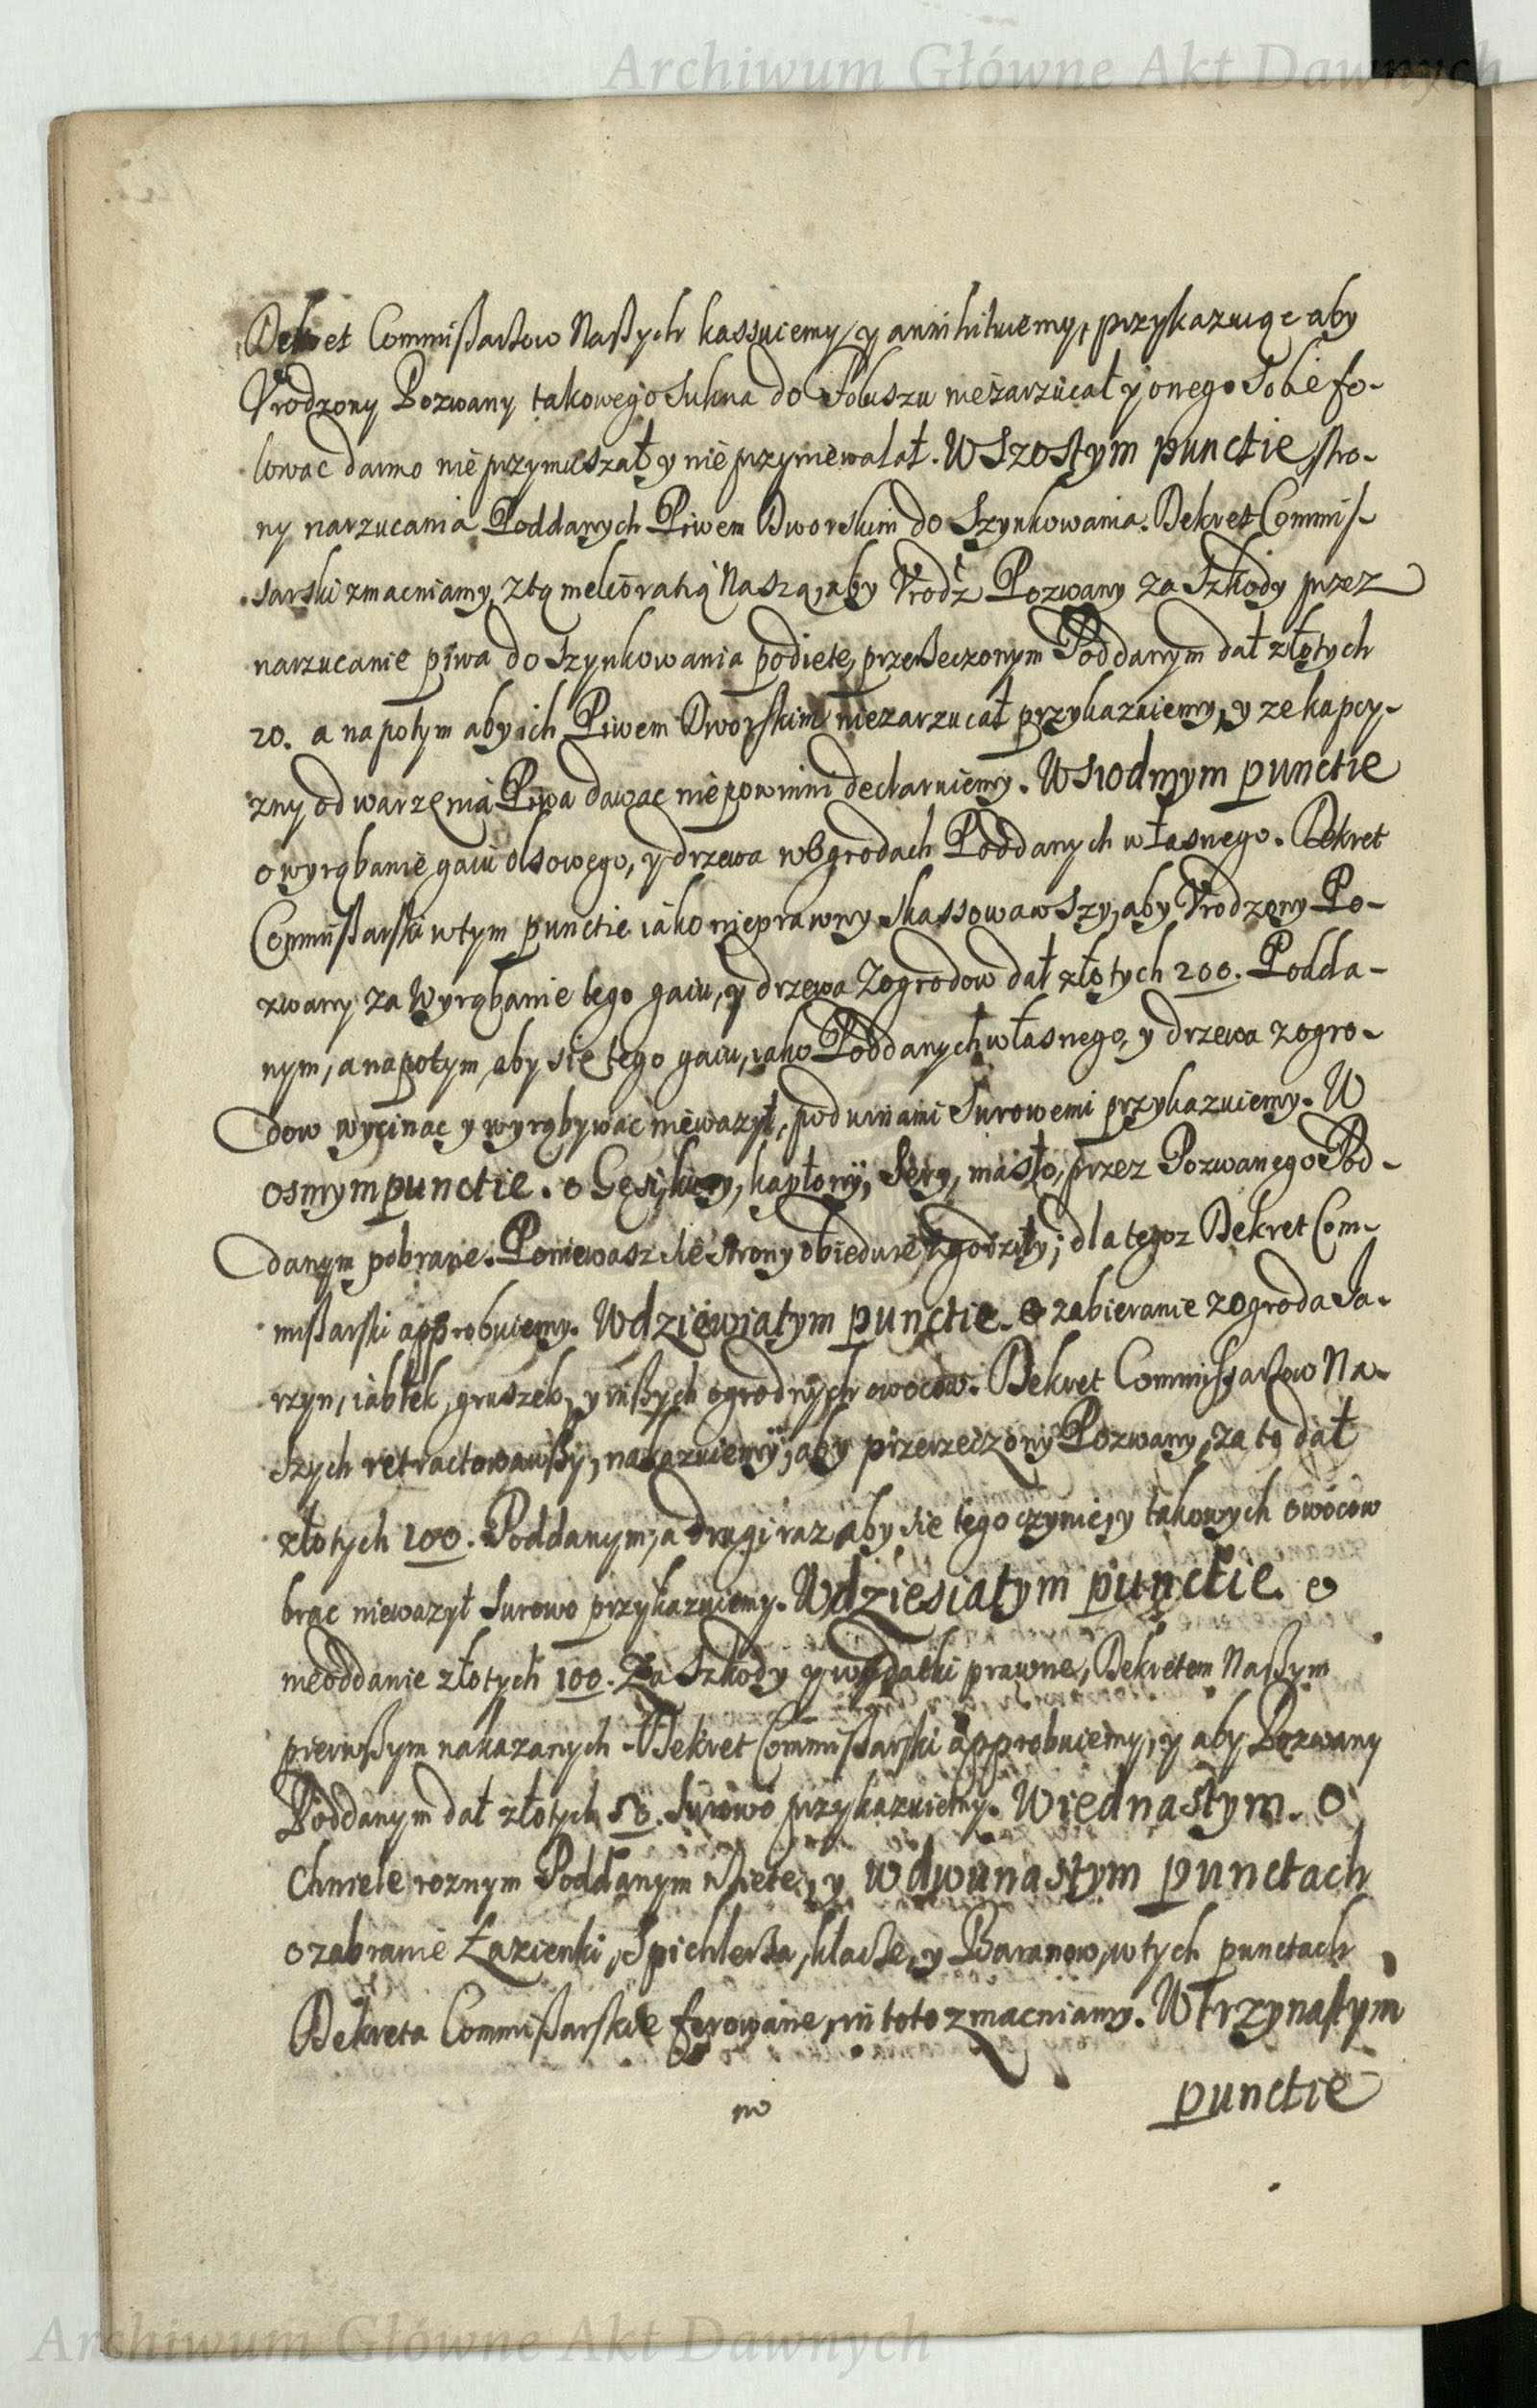 Archiwum Główne Akt Dawnych
Dekret Commißarßow Naßych kassuiemy y annihiluiemy, przykazuiąc aby
Vrodzony Pozwany takowego sukna do Foluszu niezarzucał y onego sobie fo-
lowac darmo nie przymuszał y nie przyniewalał. W Szostym punctie stro-
ny narzucania Poddanych Piwem Dworskim do Szynkowania. Dekret Commis-
sarski zmacniamy, z tą melioratią Naszą, aby Vrodz Pozwany za Szkody przez
narzucanie piwa do szynkowania podięte, przerzeczonym Poddanym dał złotych
20. a napotym aby ich Piwem Dworskim niezarzucał przykazuiemy, y ze kapcy-
zny od warzenia Piwa dawac nie powinni declaruiemy. W Siodmym punctie
o wyrąbanie gaiu olsowego, y drzewa w ogrodach Poddanych własnego. Dekret
Commißarski w tym punctie iako nieprawny skassowawszy, aby Vrodzony Po-
zwany za wyrąbanie tego gaiu, y drzewa z ogrodow dał złotych 200. Podda-
nym, a napotym aby się tego gaiu, iako Poddanych własnego, y drzewa z ogro-
dow wycinac y wyrąbywac nieważył, pod winami surowemi przykazuiemy. W
osmym punctie. o Gęsi, kury, kapłony, sery, masło, przez Pozwanego Pod-
danym pobrane. Poniewasz sie strony obiedwie zgodziły; dla tegoz Dekret Com-
mißarski approbuiemy. W dziewiatym punctie. o zabieranie z ogroda Ja-
rzyn, iabłek, gruszek, y inßych ogrodnych owocow. Dekret Commissarßow Na-
szych retractowawßy, nakazuiemy, aby przerzeczony Pozwany, za to dał
złotych 100. Poddanym; a drugi raz aby sie tego czynic, y takowych owocow
brac nieważył surowo przykazuiemy. W dziesiatym punctie. o
nieoddanie złotych 100. Za Szkody y wydatki prawne, Dekretem Naßym
pierwßym nakazanych. Dekret Commißarski approbuiemy, y aby Pozwany
Poddanym dał złotych 50. surowo przykazuiemy. W iednastym. O
Chmiele roznym Poddanym wziete, y w dwunastym punctach
o zabranie Łazienki, Spichlerza, klacze, y Baranow, w tych punctach
Dekreta Commißarskie ferowane, in toto zmacniamy. W trzynastym
punctie
Archiwum Główne Akt Dawnych